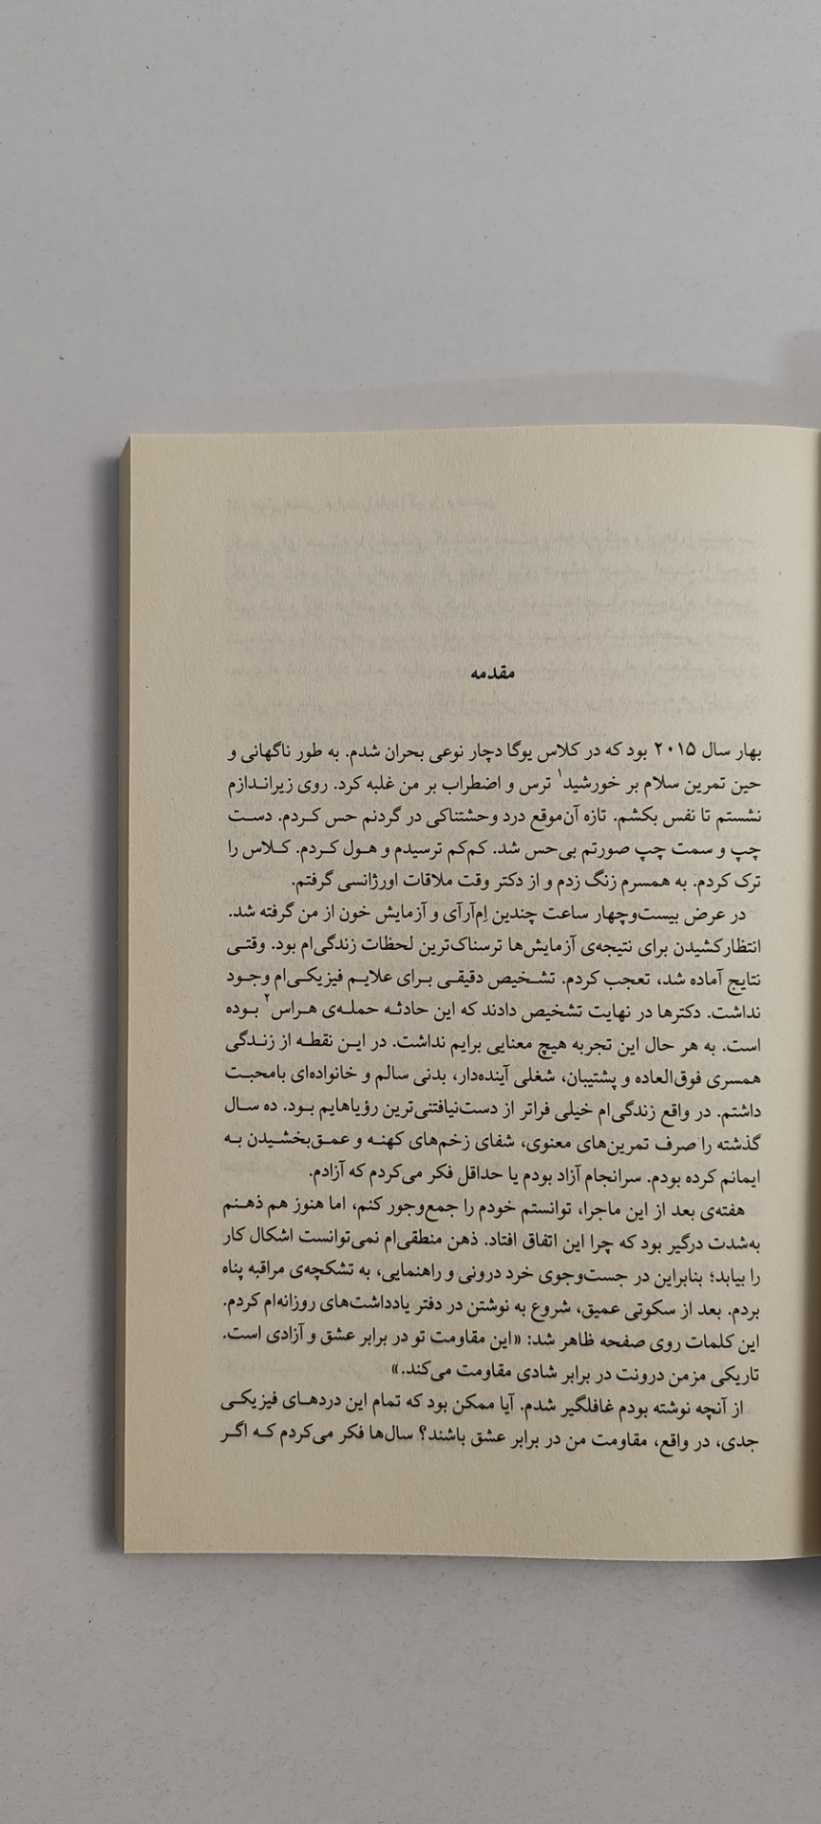 مقدمه
بهار سال ۲۰۱۵ بود که در کلاس یوگا دچار نوعی بحران شدم. به طور ناگهانی و
حین تمرین سلام بر خورشید۱ ترس و اضطراب بر من غلبه کرد. روی زیراندازم
نشستم تا نفس بکشم. تازه آن‌موقع درد وحشتناکی در گردنم حس کردم. دست
چپ و سمت چپ صورتم بی‌حس شد. کم‌کم ترسیدم و هول کردم. کلاس را
ترک کردم. به همسرم زنگ زدم و از دکتر وقت ملاقات اورژانسی گرفتم.
در عرض بیست‌وچهار ساعت چندین اِم‌آرآی و آزمایش خون از من گرفته شد.
انتظار کشیدن برای نتیجه‌ی آزمایش‌ها ترسناک‌ترین لحظات زندگی‌ام بود. وقتی
نتایج آماده شد، تعجب کردم. تشخیص دقیقی برای علایم فیزیکی‌ام وجود
نداشت. دکترها در نهایت تشخیص دادند که این حادثه حمله‌ی هراس۲ بوده
است. به هر حال این تجربه هیچ معنایی برایم نداشت. در این نقطه از زندگی
همسری فوق‌العاده و پشتیبان، شغلی آینده‌دار، بدنی سالم و خانواده‌ای بامحبت
داشتم. در واقع زندگی‌ام خیلی فراتر از دست‌نیافتنی‌ترین رؤیاهایم بود. ده سال
گذشته را صرف تمرین‌های معنوی، شفای زخم‌های کهنه و عمق‌بخشیدن به
ایمانم کرده بودم. سرانجام آزاد بودم یا حداقل فکر می‌کردم که آزادم.
هفته‌ی بعد از این ماجرا، توانستم خودم را جمع‌وجور کنم، اما هنوز هم ذهنم
به‌شدت درگیر بود که چرا این اتفاق افتاد. ذهن منطقی‌ام نمی‌توانست اشکال کار
را بیابد؛ بنابراین در جست‌وجوی خرد درونی و راهنمایی، به تشکچه‌ی مراقبه پناه
بردم. بعد از سکوتی عمیق، شروع به نوشتن در دفتر یادداشت‌های روزانه‌ام کردم.
این کلمات روی صفحه ظاهر شد: «این مقاومت تو در برابر عشق و آزادی است.
تاریکی مزمن درونت در برابر شادی مقاومت می‌کند.»
از آنچه نوشته بودم غافلگیر شدم. آیا ممکن بود که تمام این دردهای فیزیکی
جدی، در واقع، مقاومت من در برابر عشق باشند؟ سال‌ها فکر می‌کردم که اگر